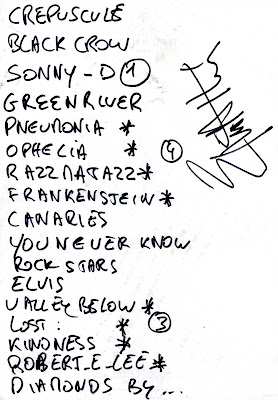 CREPUSCULE
BLACK CROW
SONNY-D 1
GREEN RIVER
PNEUMONIA *
OPHELIA * 4
RAZZMATAZZ *
FRANKENSTEIN *
CANARIES
YOU NEVER KNOW
ROCK STARS
ELVIS
VALLEY BELOW *
LOST: * 3
KINDNESS *
ROBERT_E_LEE *
DIAMONDS BY...